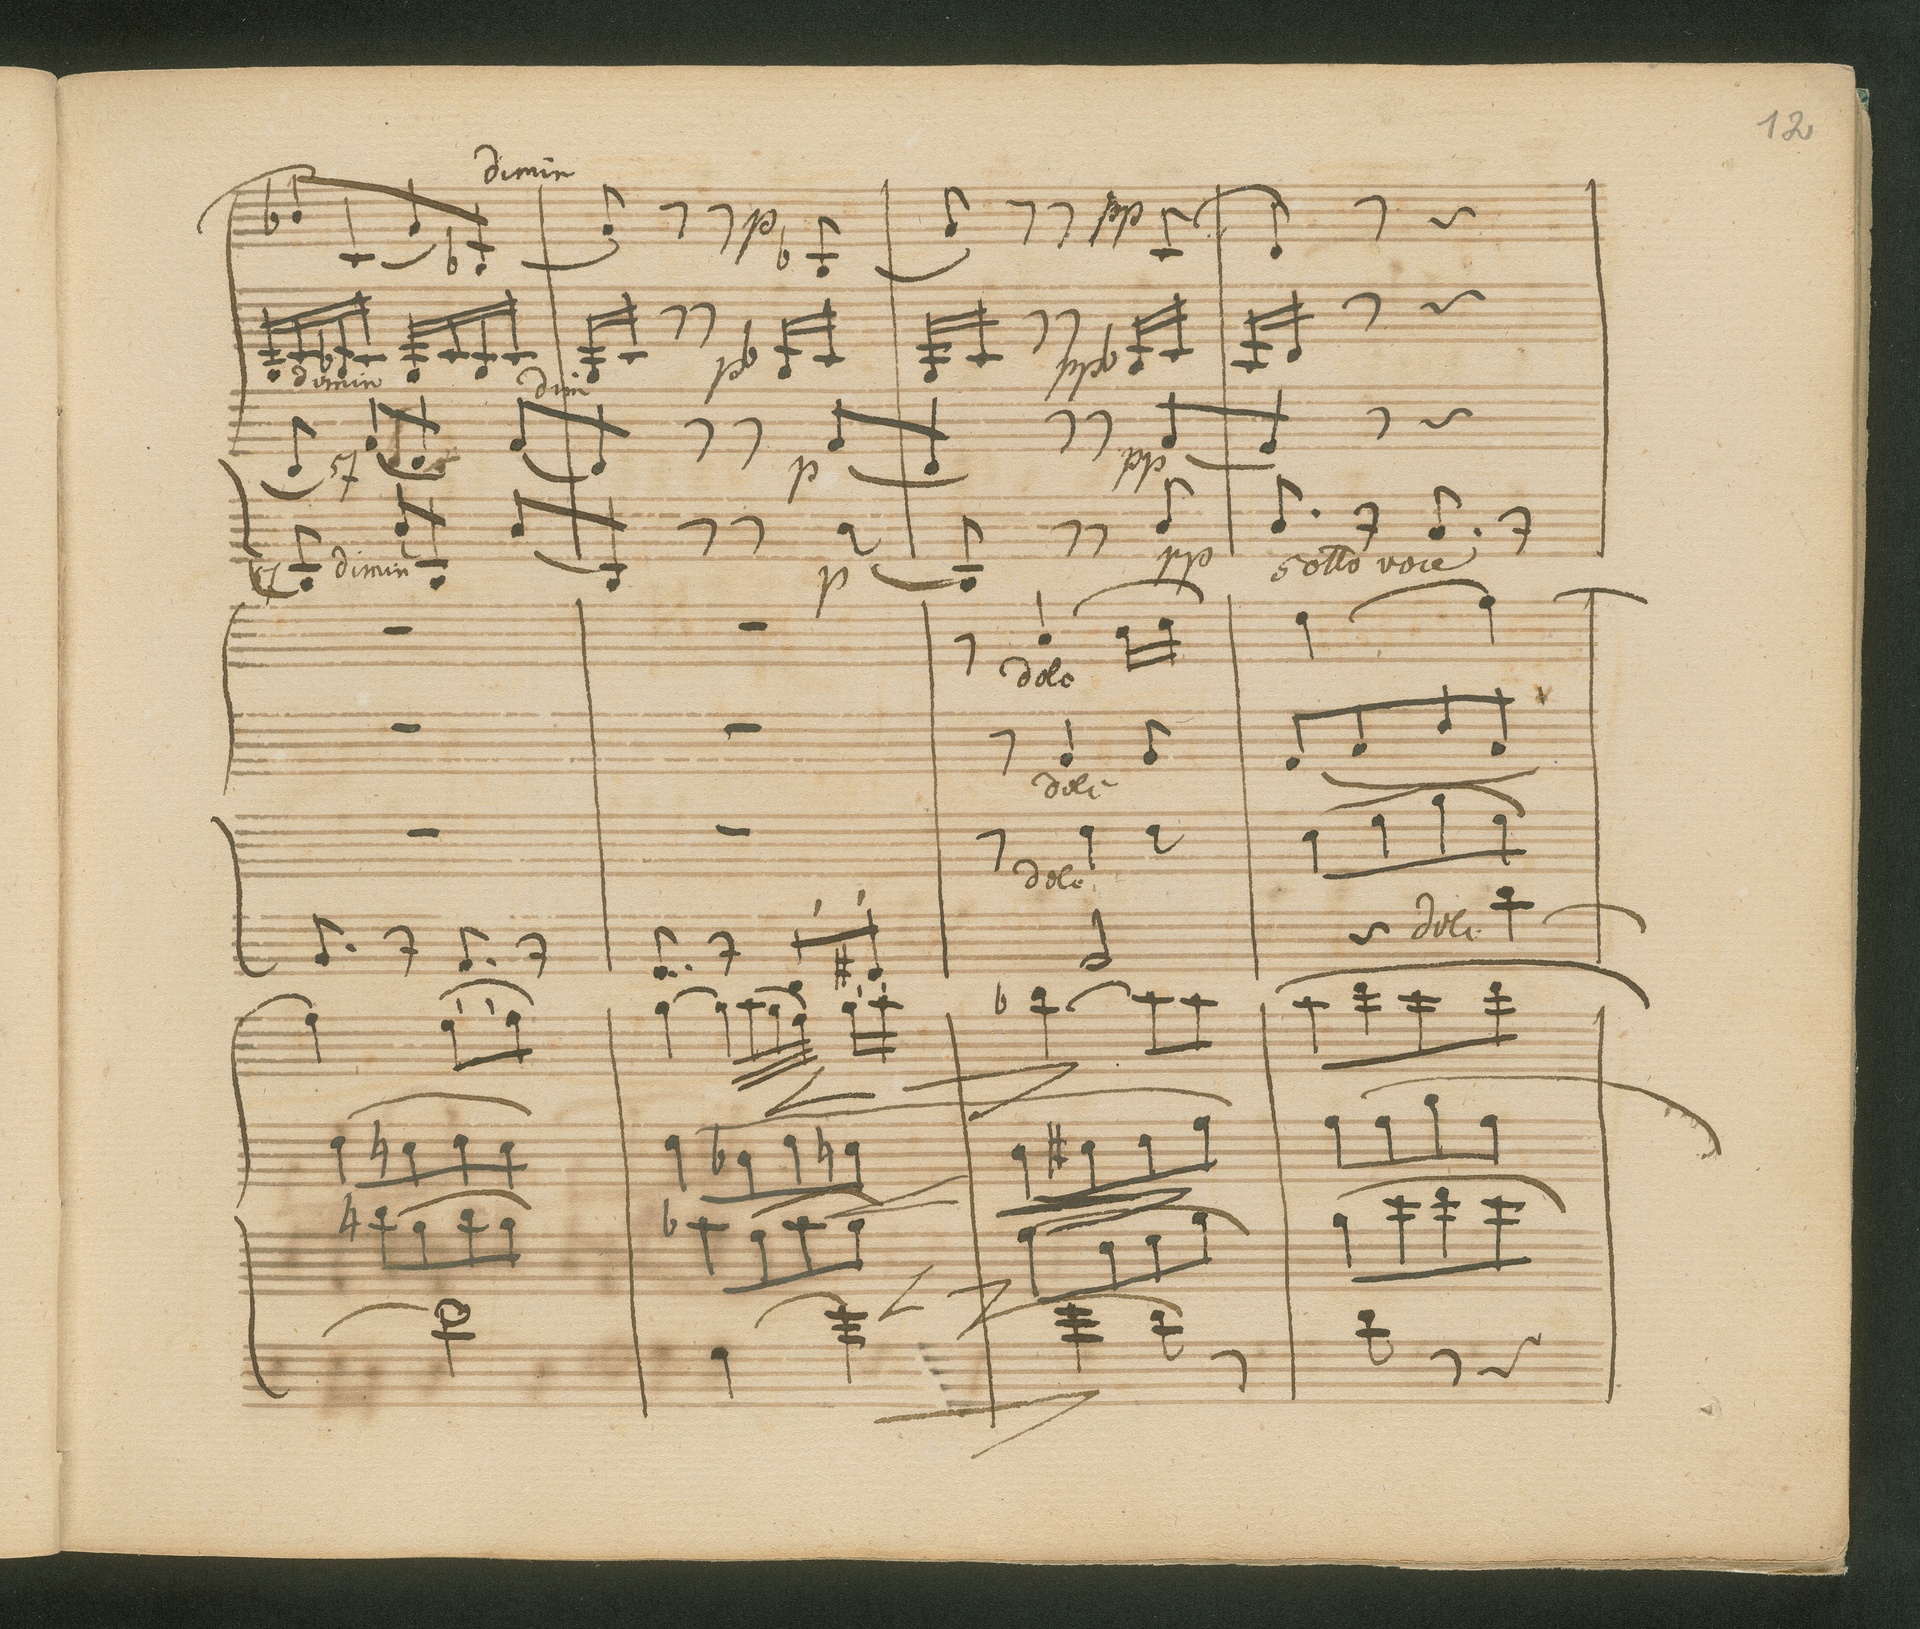 12
dimin
p pp
dimin pp ppp
dim
p pp
dimin p pp sotto voce
dolc
dolc
dolc
dolc